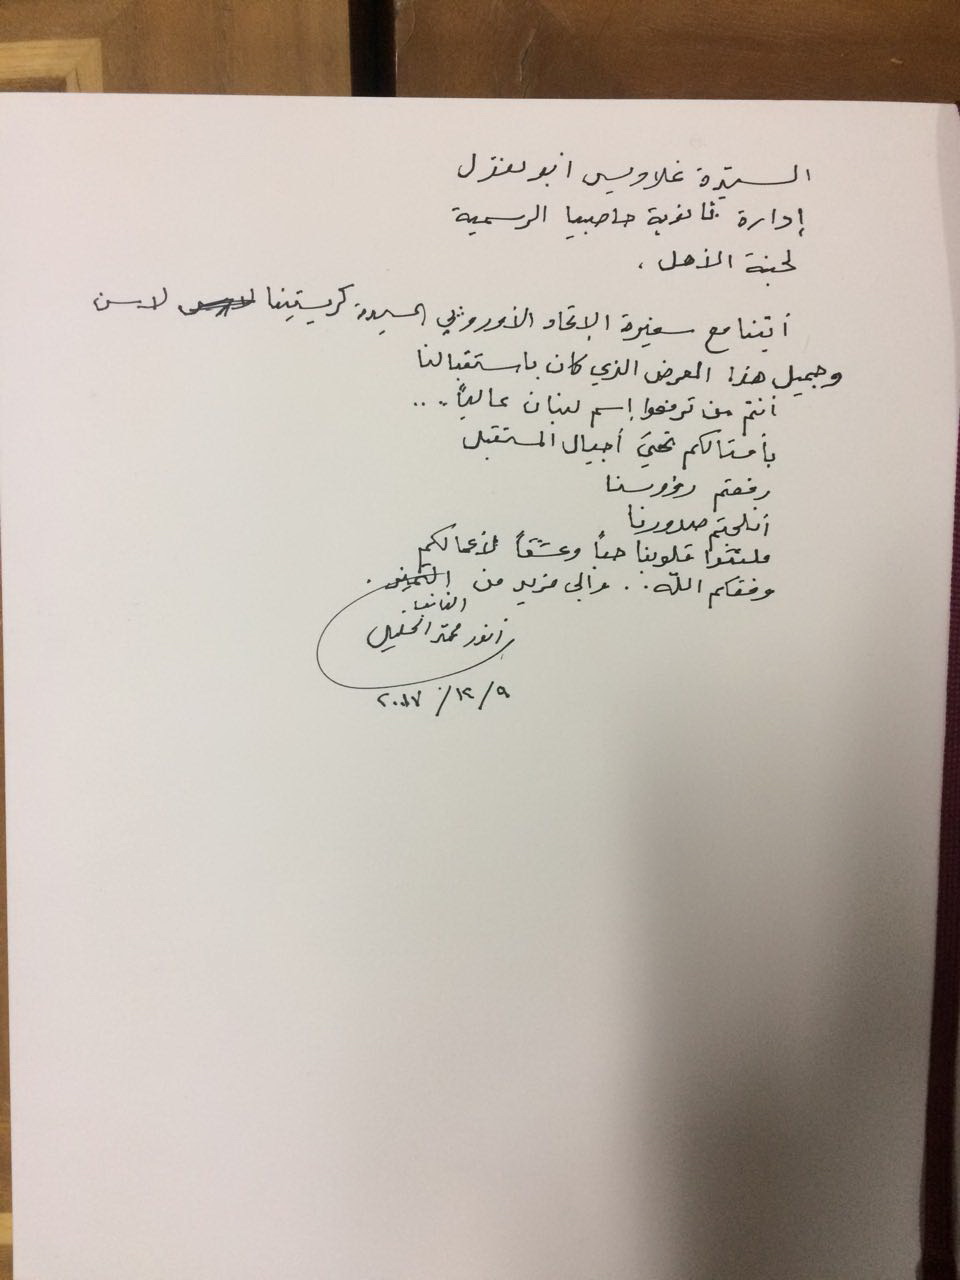 السيّدة غلاديس ابو لغزل
إدارة ثانوية حاصبيا الرسمية
لجنة الأهل ،
أتينا مع سفيرة الإتحاد الأوروبي السيدة كريستينا لاسن
وجميل هذا المعرض الذي كان باستقبالنا
أنتم من ترفعوا إسم لبنان عالياً...
بأمثالكم تحيَ أجيال المستقبل
رفعتم رؤوسنا
أثلجتم صدورنا
مليتوا قلوبنا حباً وعشقاً لأعمالكم
وفقكم الله.. والى مزيد من التميّز.
النائب
أنور محمد الخليل
٩/ ١٢/ ٢٠١٧